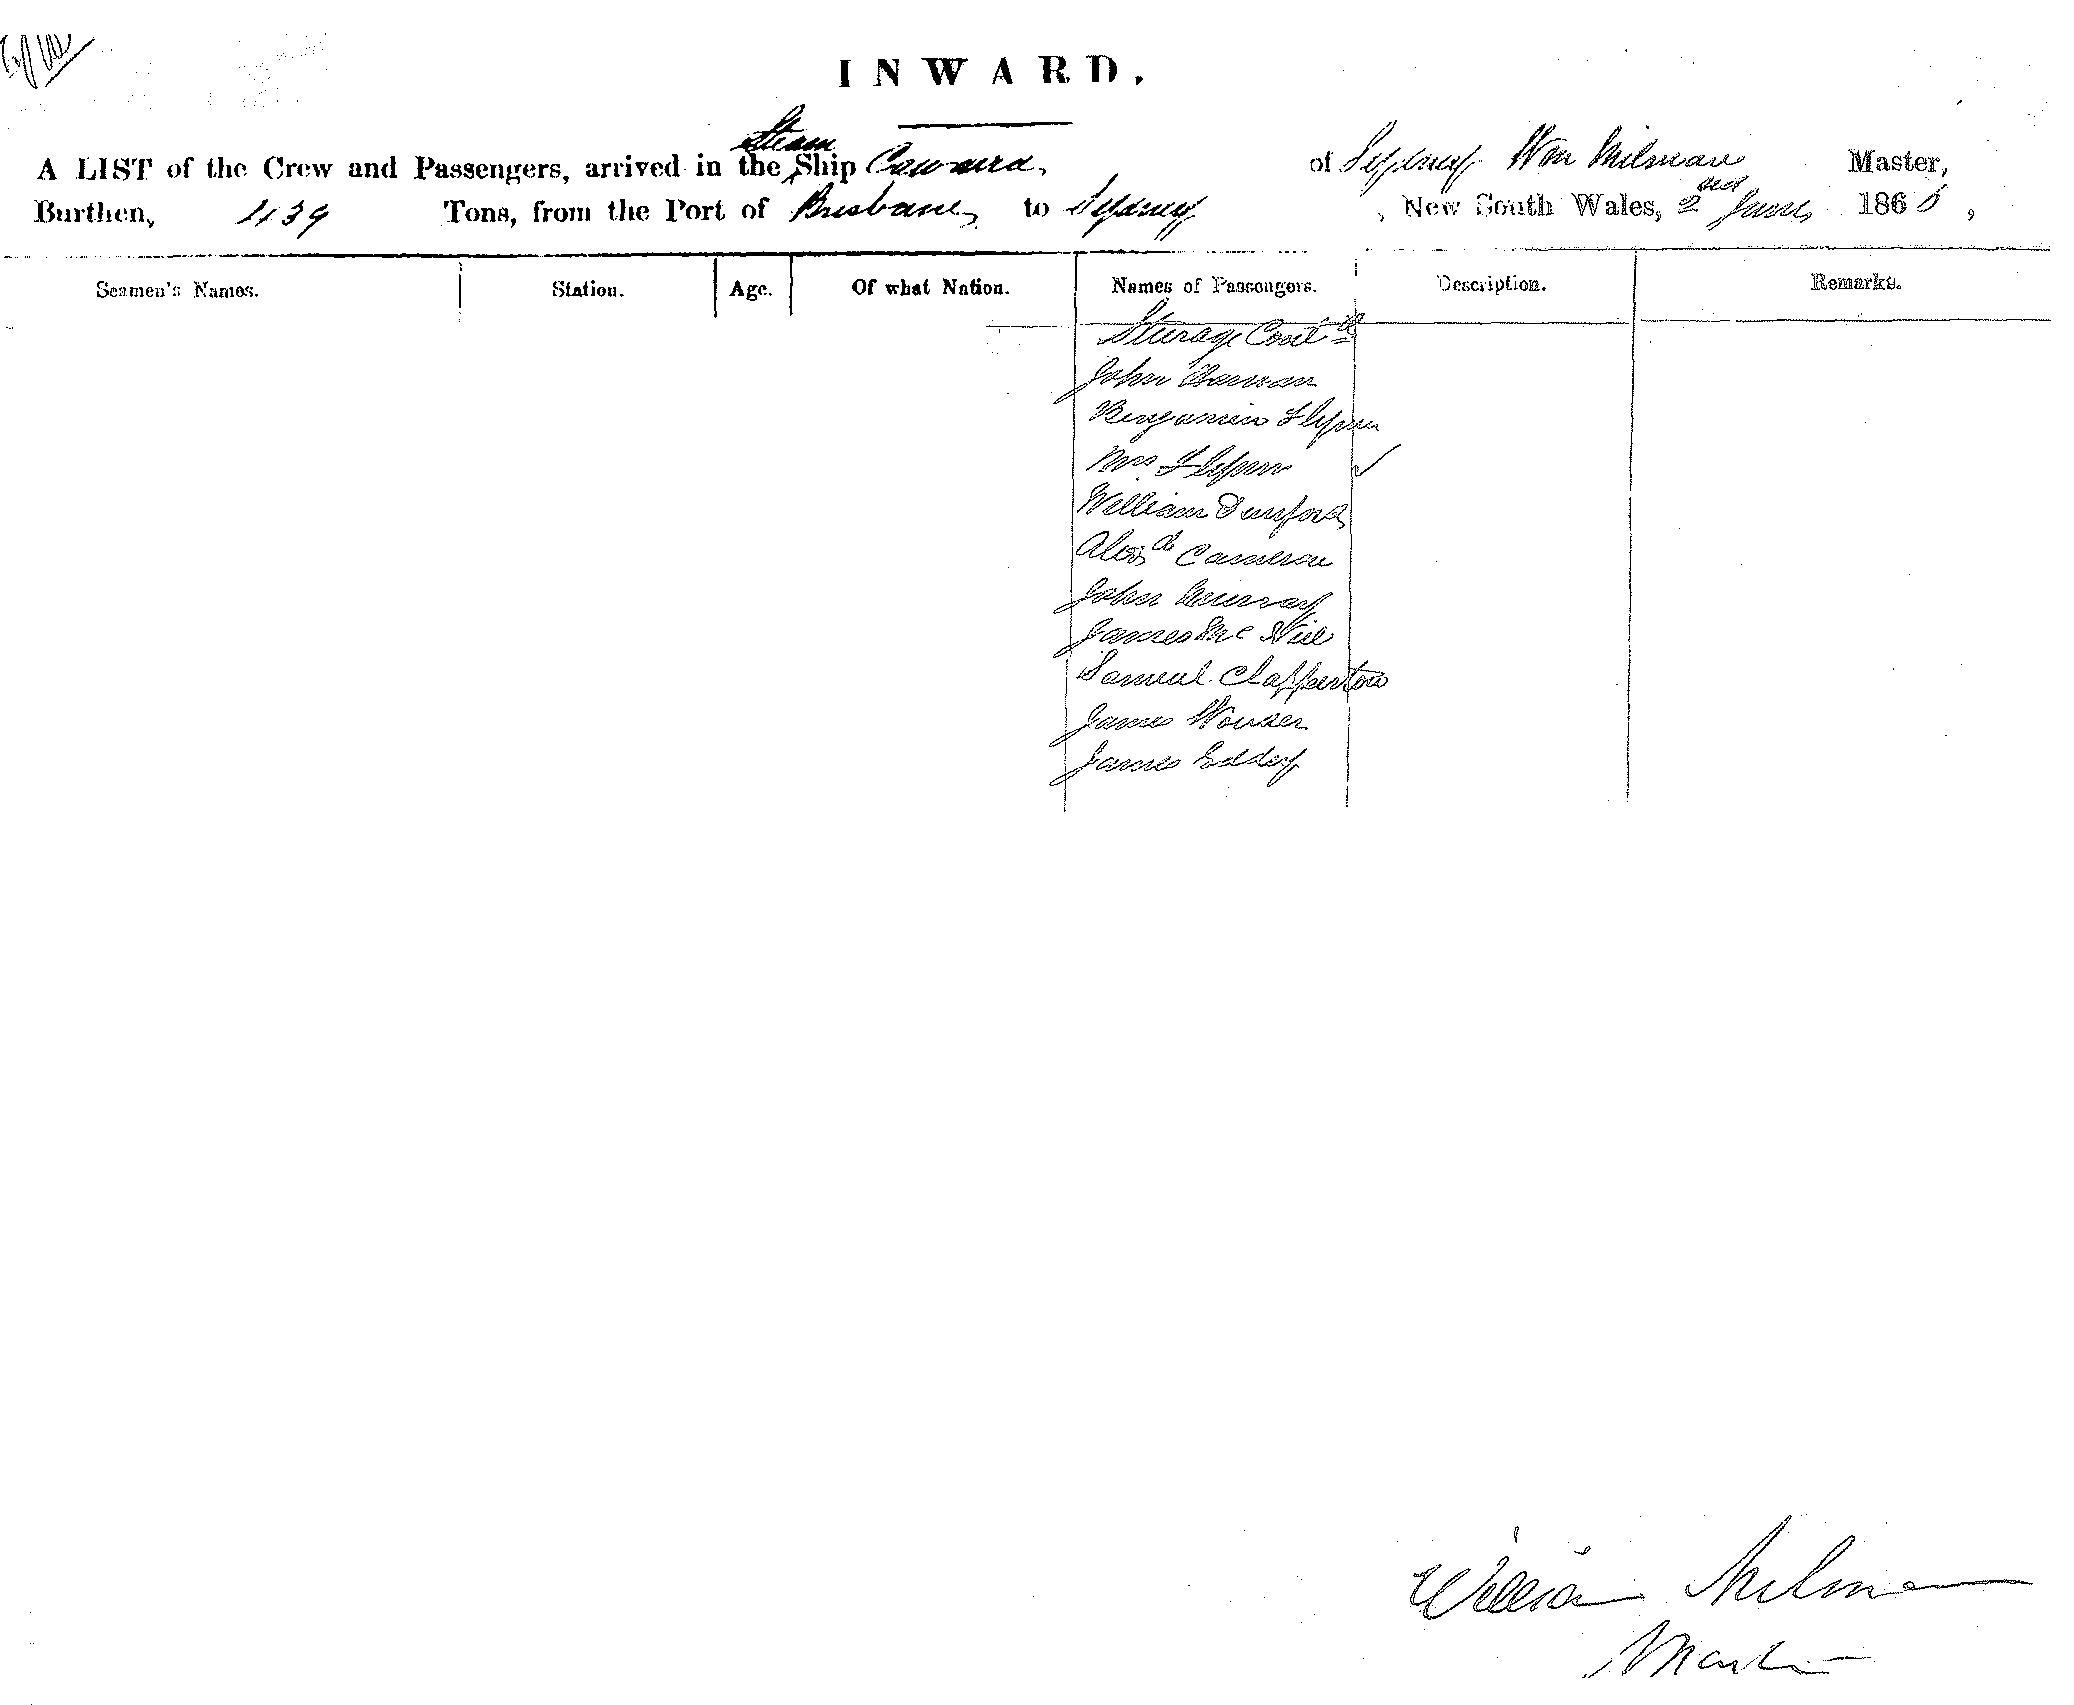 INWARD.
A LIST of the Crew and Passengers, arrived in the Steam Ship Cawarra, of Sydney Wm Milman Master,
Burthen, 439 Tons, from the Port of Brisbane, to Sydney, New South Wales, 2nd June, 1865,
Seamen's Names. Station. Age. Of what Nation. Names of Passengers. Description. Remarks.
Steerage Contd
John
Benjamin Flynn
Mrs Flynn ✓
William Durford
Alexr Cameron
John Murray
James McNiel
Samuel Clapperton
James Wonser
James Eddey
William Milman
Master